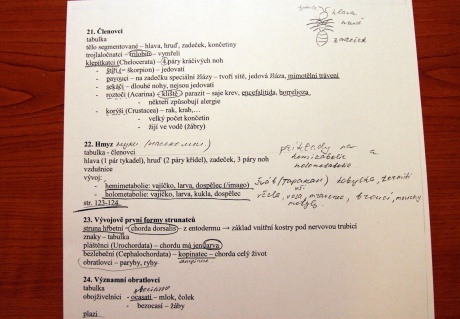 hlava
zadeček
21. Členovci
tabulka
tělo segmentované – hlava, hruď, zadeček, končetiny
trojlaločnatci – trilobiti – vymřeli
klepítkatci (Chelocerata) – 4 páry kráčivých noh
- štíři (= škorpion) – jedovatí
- pavouci – na zadečku speciální žlázy – tvoří sítě, jedová žláza, mimotělní trávení
- sekáči – dlouhé nohy, nejsou jedovatí
- roztoči (Acarina) – klíště – parazit – saje krev, encefalitida, borrelioza,
- někteří způsobují alergie
- korýši (Crustacea) – rak, krab,…
- velký počet končetin
- žijí ve vodě (žábry)
22. Hmyz
tabulka - členovci
příklady na
hlava (1 pár tykadel), hruď (2 páry křídel), zadeček, 3 páry noh
hemimetabolie a
vzdušnice
holometabolie
vývoj:
- hemimetabolie: vajíčko, larva, dospělec (/imago)
- holometabolie: vajíčko, larva, kukla, dospělec
včela, vosa, mravenec, brouci, mouchy
motýly
str. 123-124
23. Vývojově první formy strunatců
struna hřbetní – chorda dorsalis – z entodermu → základ vnitřní kostry pod nervovou trubicí
znaky – tabulka
pláštěnci (Urochordata) – chordu má jen larva
bezlebeční (Cephalochordata) – kopinatec – chorda celý život
obratlovci – paryby, ryby
24. Významní obratlovci
tabulka
obojživelníci - ocasatí – mlok, čolek
- bezocasí – žáby
plazi